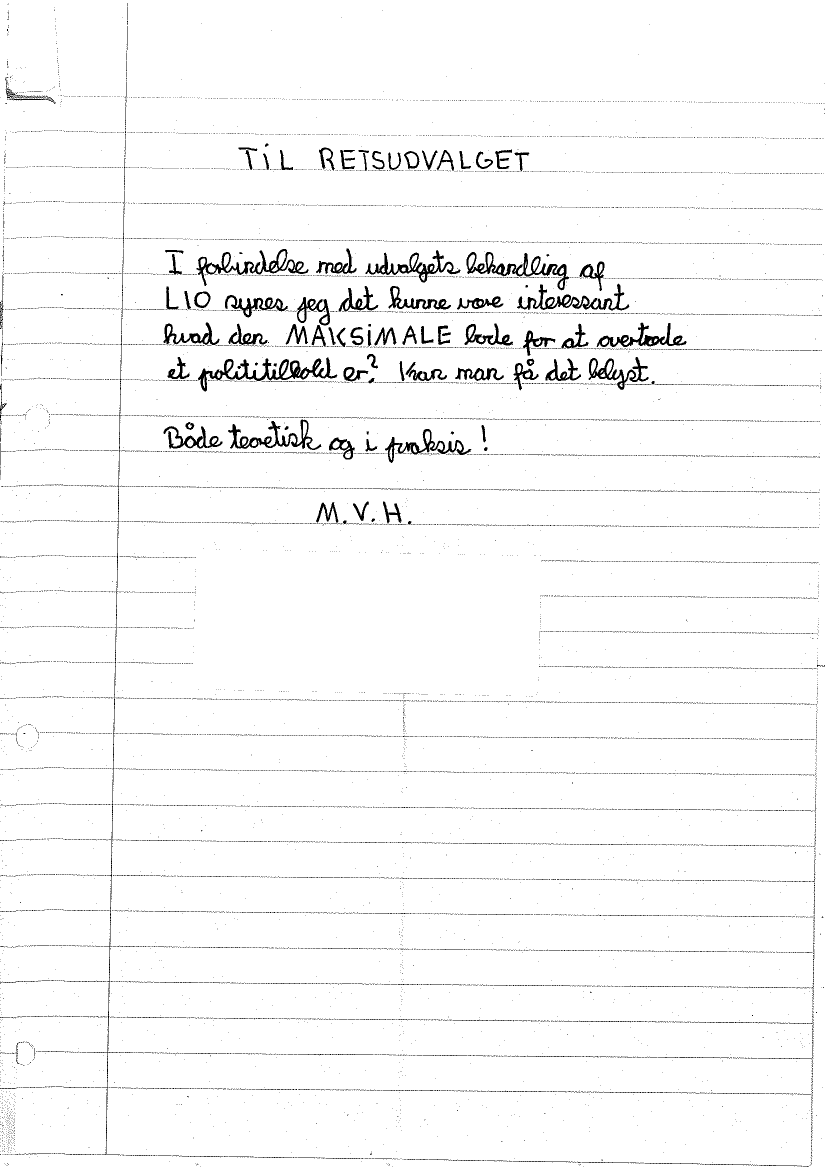 TiL RETSUDVALGET
I forbindelse med udvalgets behandling af
L10 synes jeg det kunne være interessant
hvad den MAKSiMALE bøde for at overtræde
et polititilhold er? Kan man få det belyst.
Både teoretisk og i praksis!
M.V.H.